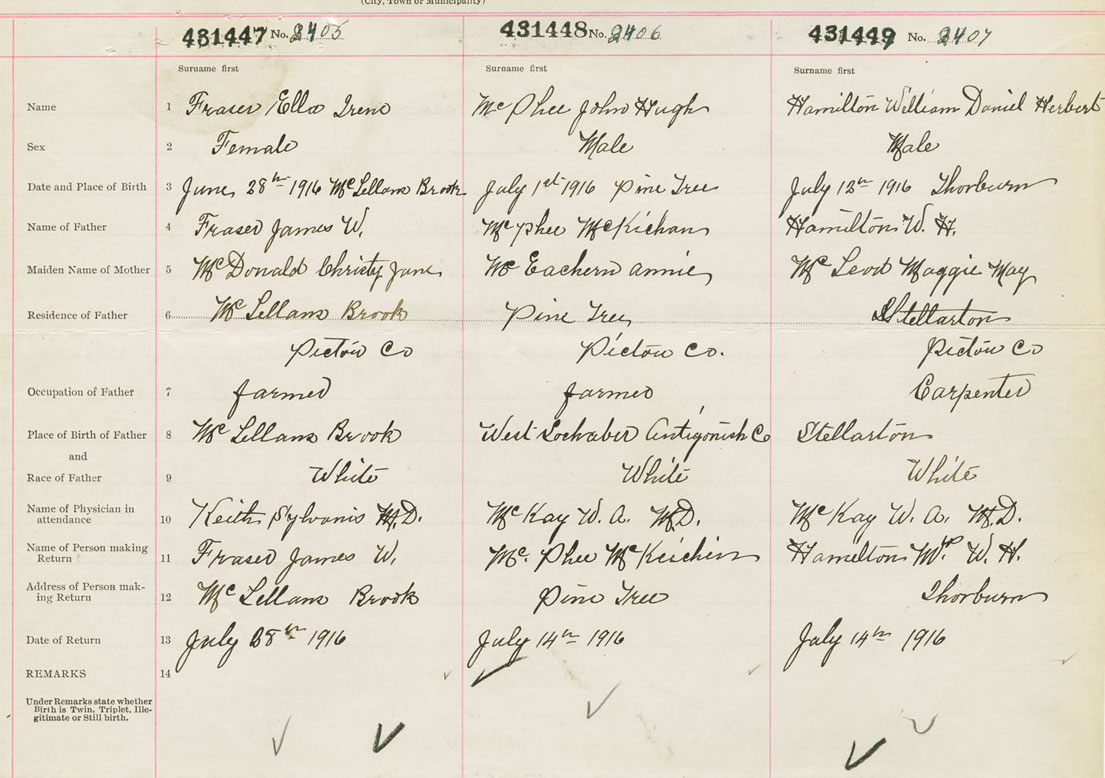 (City, Town or Municipality)
431447 No. 2405 431448 No. 2406 431449 No. 2407
Surname first Surname first Surname first
Name 1 Fraser Ella Irene McPhee John Hugh Hamilton William Daniel Herbert
Sex 2 Female Male Male
Date and Place of Birth 3 June 28th 1916 McLellans Brook July 1st 1916 Pine Tree July 12th 1916 Thorburn
Name of Father 4 Fraser James W. McPhee McKichan Hamilton W. H.
Maiden Name of Mother 5 McDonald Christy Jane McEachern Annie McLeod Maggie May
Residence of Father 6 McLellans Brook Pine Tree Stellarton
Pictou Co Pictou Co. Pictou Co
Occupation of Father 7 farmer farmer Carpenter
Place of Birth of Father 8 McLellans Brook West Lochaber Antigonish Co Stellarton
and
Race of Father 9 White White White
Name of Physician in
attendance 10 Keith Sylvanis M.D. McKay W. A. M.D. McKay W. A. M.D.
Name of Person making
Return 11 Fraser James W. Mc. Phee McKeichin Hamelton W. H.
Address of Person mak-
ing Return 12 McLellans Brook Pine Tree Thorburn
Date of Return 13 July 28th 1916 July 14th 1916 July 14th 1916
REMARKS 14
Under Remarks state whether
Birth is Twin, Triplet, Ille-
gitimate or Still birth.